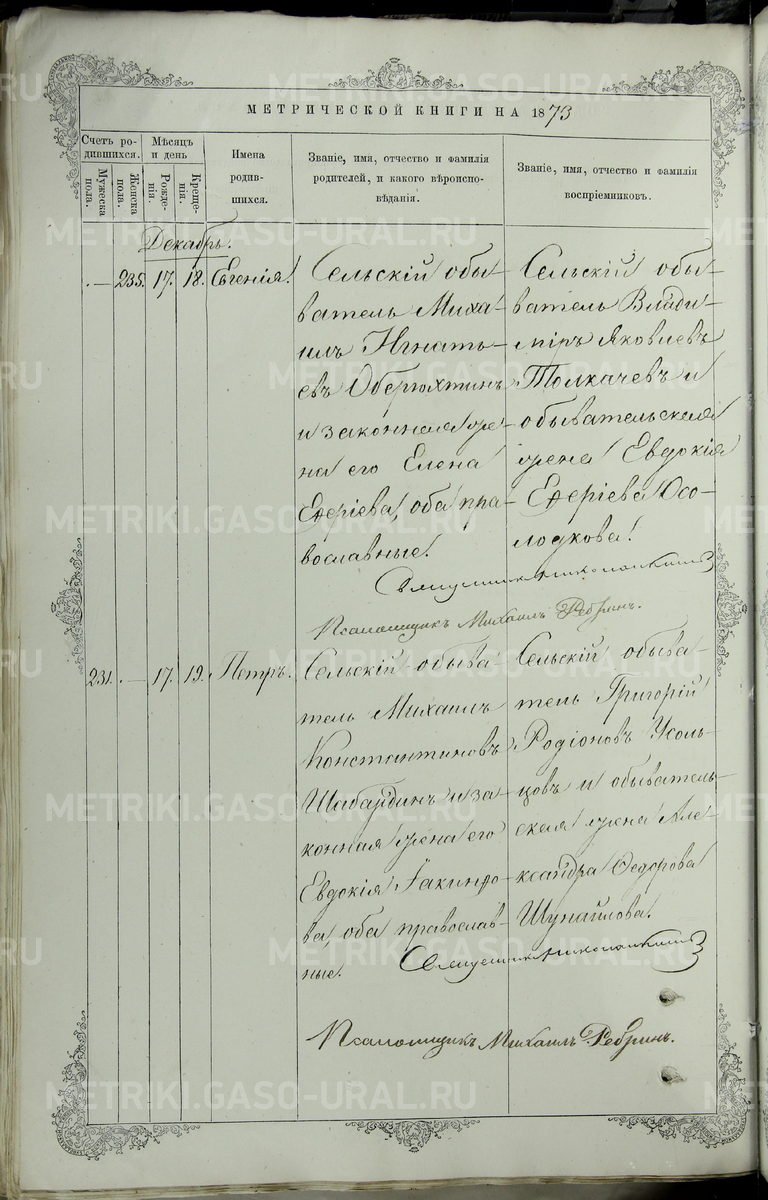 МЕТРИЧЕСКОЙ КНИГИ НА 1873
Счетъ родившихся.
Мужеска пола.
Женска пола.
Мѣсяцъ и день
Рожденія.
Крещенія.
Имена родившихся.
Званіе, имя, отчество и фамилія
родителей, и какого вѣроиспо-
вѣданія.
Званіе, имя, отчество и фамилія
воспріемниковъ.
Декабрь.
— 235. 17. 18. Евгенія.
Сельскій обы-
ватель Миха-
илъ Игнать-
евъ Оберюхтинъ
и законная же-
на его Елена
Егоріева, оба пра-
вославные.
Сельскій обы-
ватель Влади-
міръ Яковлевъ
Толкачевъ и
обывательская
жена Евдокія
Егоріева Осо-
лодкова.
Псаломщикъ Михаилъ Ребринъ.
231. — 17. 19. Петръ.
Сельскій обыва-
тель Михаилъ
Константиновъ
Шабардинъ и за-
конная жена его
Евдокія Іакинфо-
ва, оба православ-
ные.
Сельскій обыва-
тель Григорій
Родіоновъ Усоль-
цовъ и обыватель-
ская жена Але-
ксандра Ѳедорова
Шунайлова.
Псаломщикъ Михаилъ Ребринъ.
METRIKI.GASO-URAL.RU